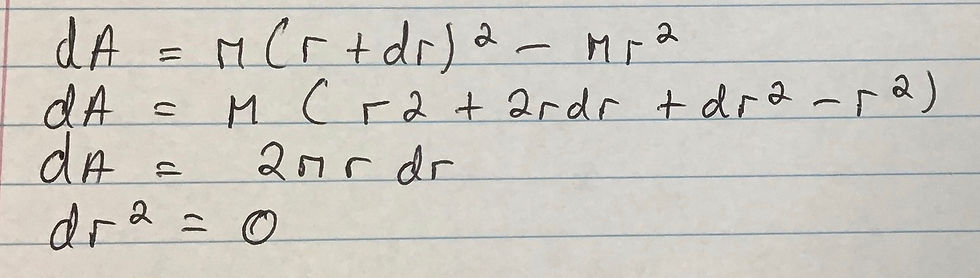 dA = π(r + dr)² - πr²
dA = π (r2 + 2rdr + dr² - r²)
dA = 2πr dr
dr² = 0